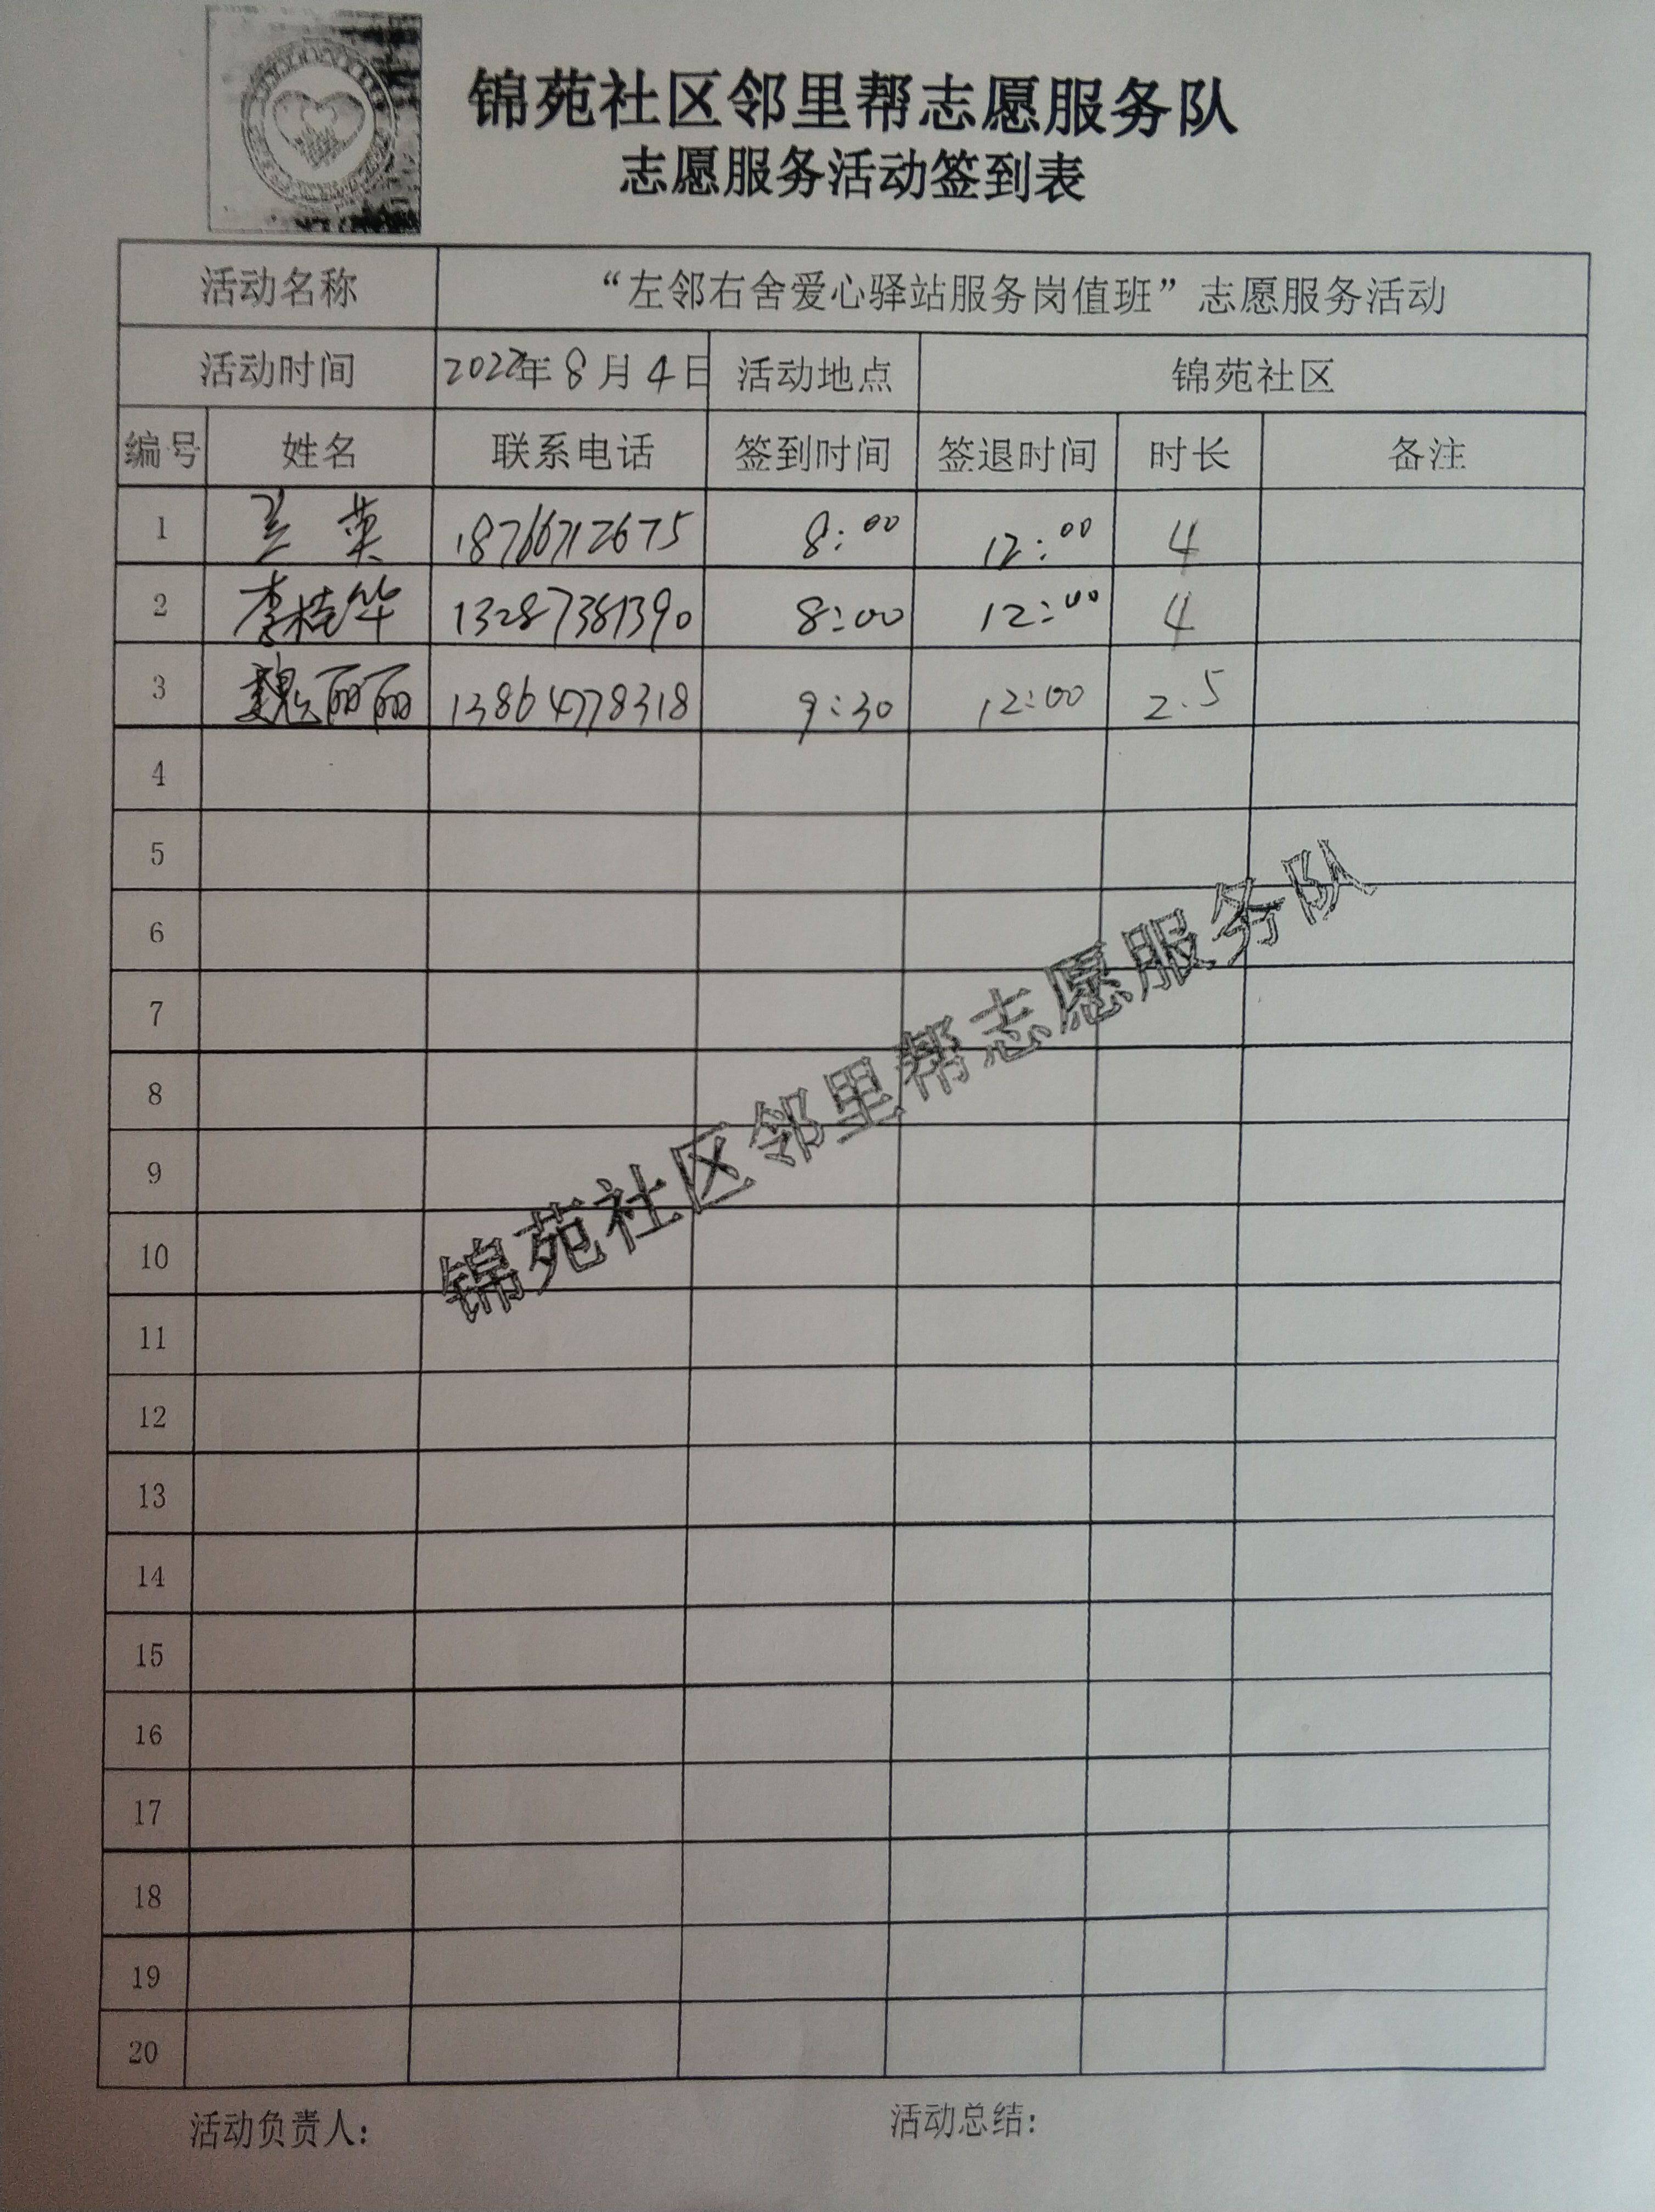 锦苑社区邻里帮志愿服务队
志愿服务活动签到表
活动名称 “左邻右舍爱心驿站服务岗值班”志愿服务活动
活动时间 2022年8月4日 活动地点 锦苑社区
编号 姓名 联系电话 签到时间 签退时间 时长 备注
1 兰英 18766712675 8:00 12:00 4
2 李桂华 13287381390 8:00 12:00 4
3 魏丽丽 13864778318 9:30 12:00 2.5
4
5
6
7
8
9
10
11
12
13
14
15
16
17
18
19
20
锦苑社区邻里帮志愿服务队
活动负责人: 活动总结: